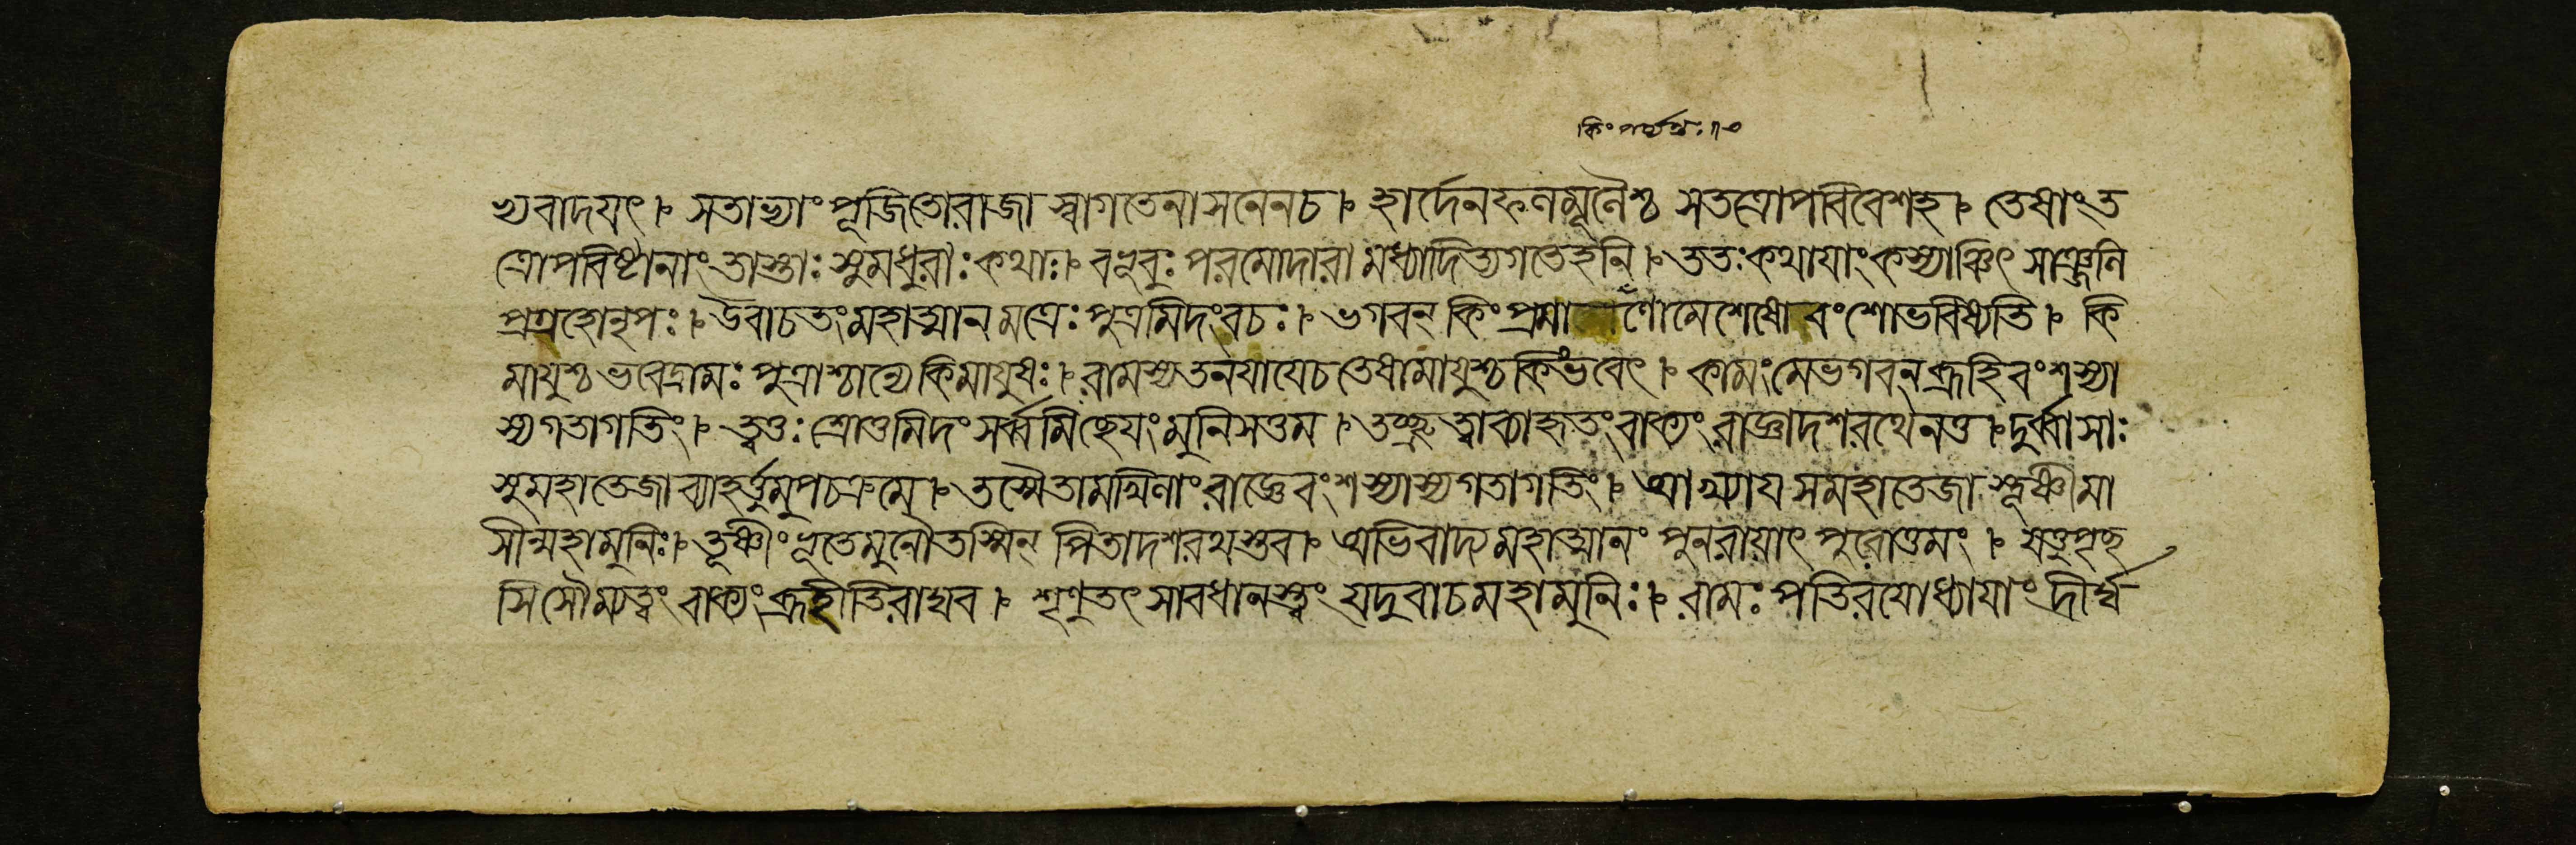 কিং পর্য্যন্তঃ ৭০
ভ্যবাদযৎ। সতাভ্যাং পূজিতোরাজা স্বাগতেনাসনেনচ। হার্দেনফলমূলৈশ্চ সতত্রোপবিবেশহ। তেষাংত
ত্রোপবিষ্টানাং তাস্তাঃ সুমধুরাঃকথাঃ। বভূবুঃ পরমোদারা মধ্যাদিত্যগতেহনি। ততঃকথাযাংকস্যাঞ্চিৎ সাঞ্জলি
প্রগ্রহোনৃপঃ। উবাচতংমহাত্মানমত্রেঃপুত্রমিদংবচঃ। ভগবন্ কিংপ্রমাণোমেশেষো বংশোভবিষ্যতি। কি
মাযুশ্চভবেদ্রামঃ পুত্রাশ্চান্যেকিমাযুষঃ। রামস্যতনযাযেচতেষামাযুশ্চকিংভবেৎ। কামংমেভগবন্ব্রূহিবংশস্যা
স্যগতাগতিং। ত্বত্তঃশ্রোতুমিদংসর্ব্বমিছেযংমুনিসত্তম। তচ্ছ্রুত্বাব্যাহৃতংবাক্যংরাজ্ঞাদশরথেনতু। দুর্ব্বাসাঃ
সুমহাতেজাব্যাহর্ত্তুমুপচক্রমে। তস্মৈতামখিলাংরাজ্ঞেবংশস্যাস্যগতাগতিং। আখ্যায সমহাতেজাস্তূষ্ণীমা
সীন্মহামুনিঃ। তূষ্ণীংভূতেমুনৌতস্মিন্ পিতাদশরথস্তব। অভিবাদ্যমহাত্মানং পুনরাযাৎ পুরোত্তমং। যত্তুপৃছ
সিসৌম্যত্বংবাক্যংব্রূহীতিরাঘব। শৃণুতৎসাবধানস্ত্বং যদুবাচমহামুনিঃ। রামঃপতিরযোধ্যাযাংদীর্ঘ